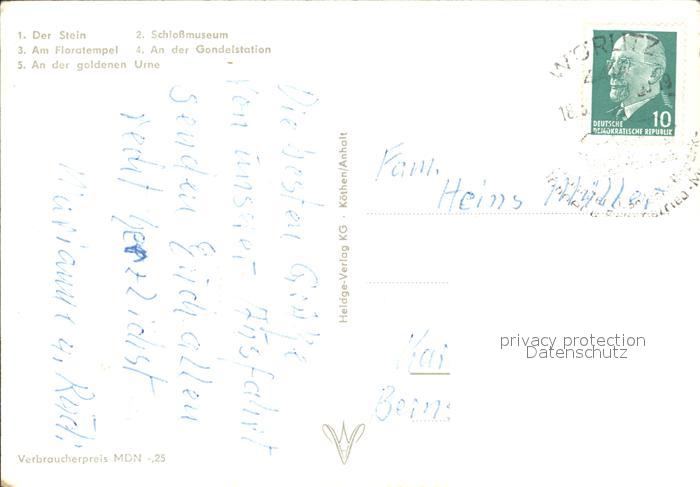 1. Der Stein 2. Schloßmuseum
3. Am Floratempel 4. An der Gondelstation
5. An der goldenen Urne
Die besten Grüße
von unserer Ausfahrt
senden Euch allen
recht herzlichst
Marianne u. Rudi
Verbraucherpreis MDN -,25
Heldge-Verlag KG · Köthen/Anhalt
WÖRLITZ
18.
10
DEUTSCHE
DEMOKRATISCHE REPUBLIK
Fam.
Heins Müller
privacy protection
Datenschutz